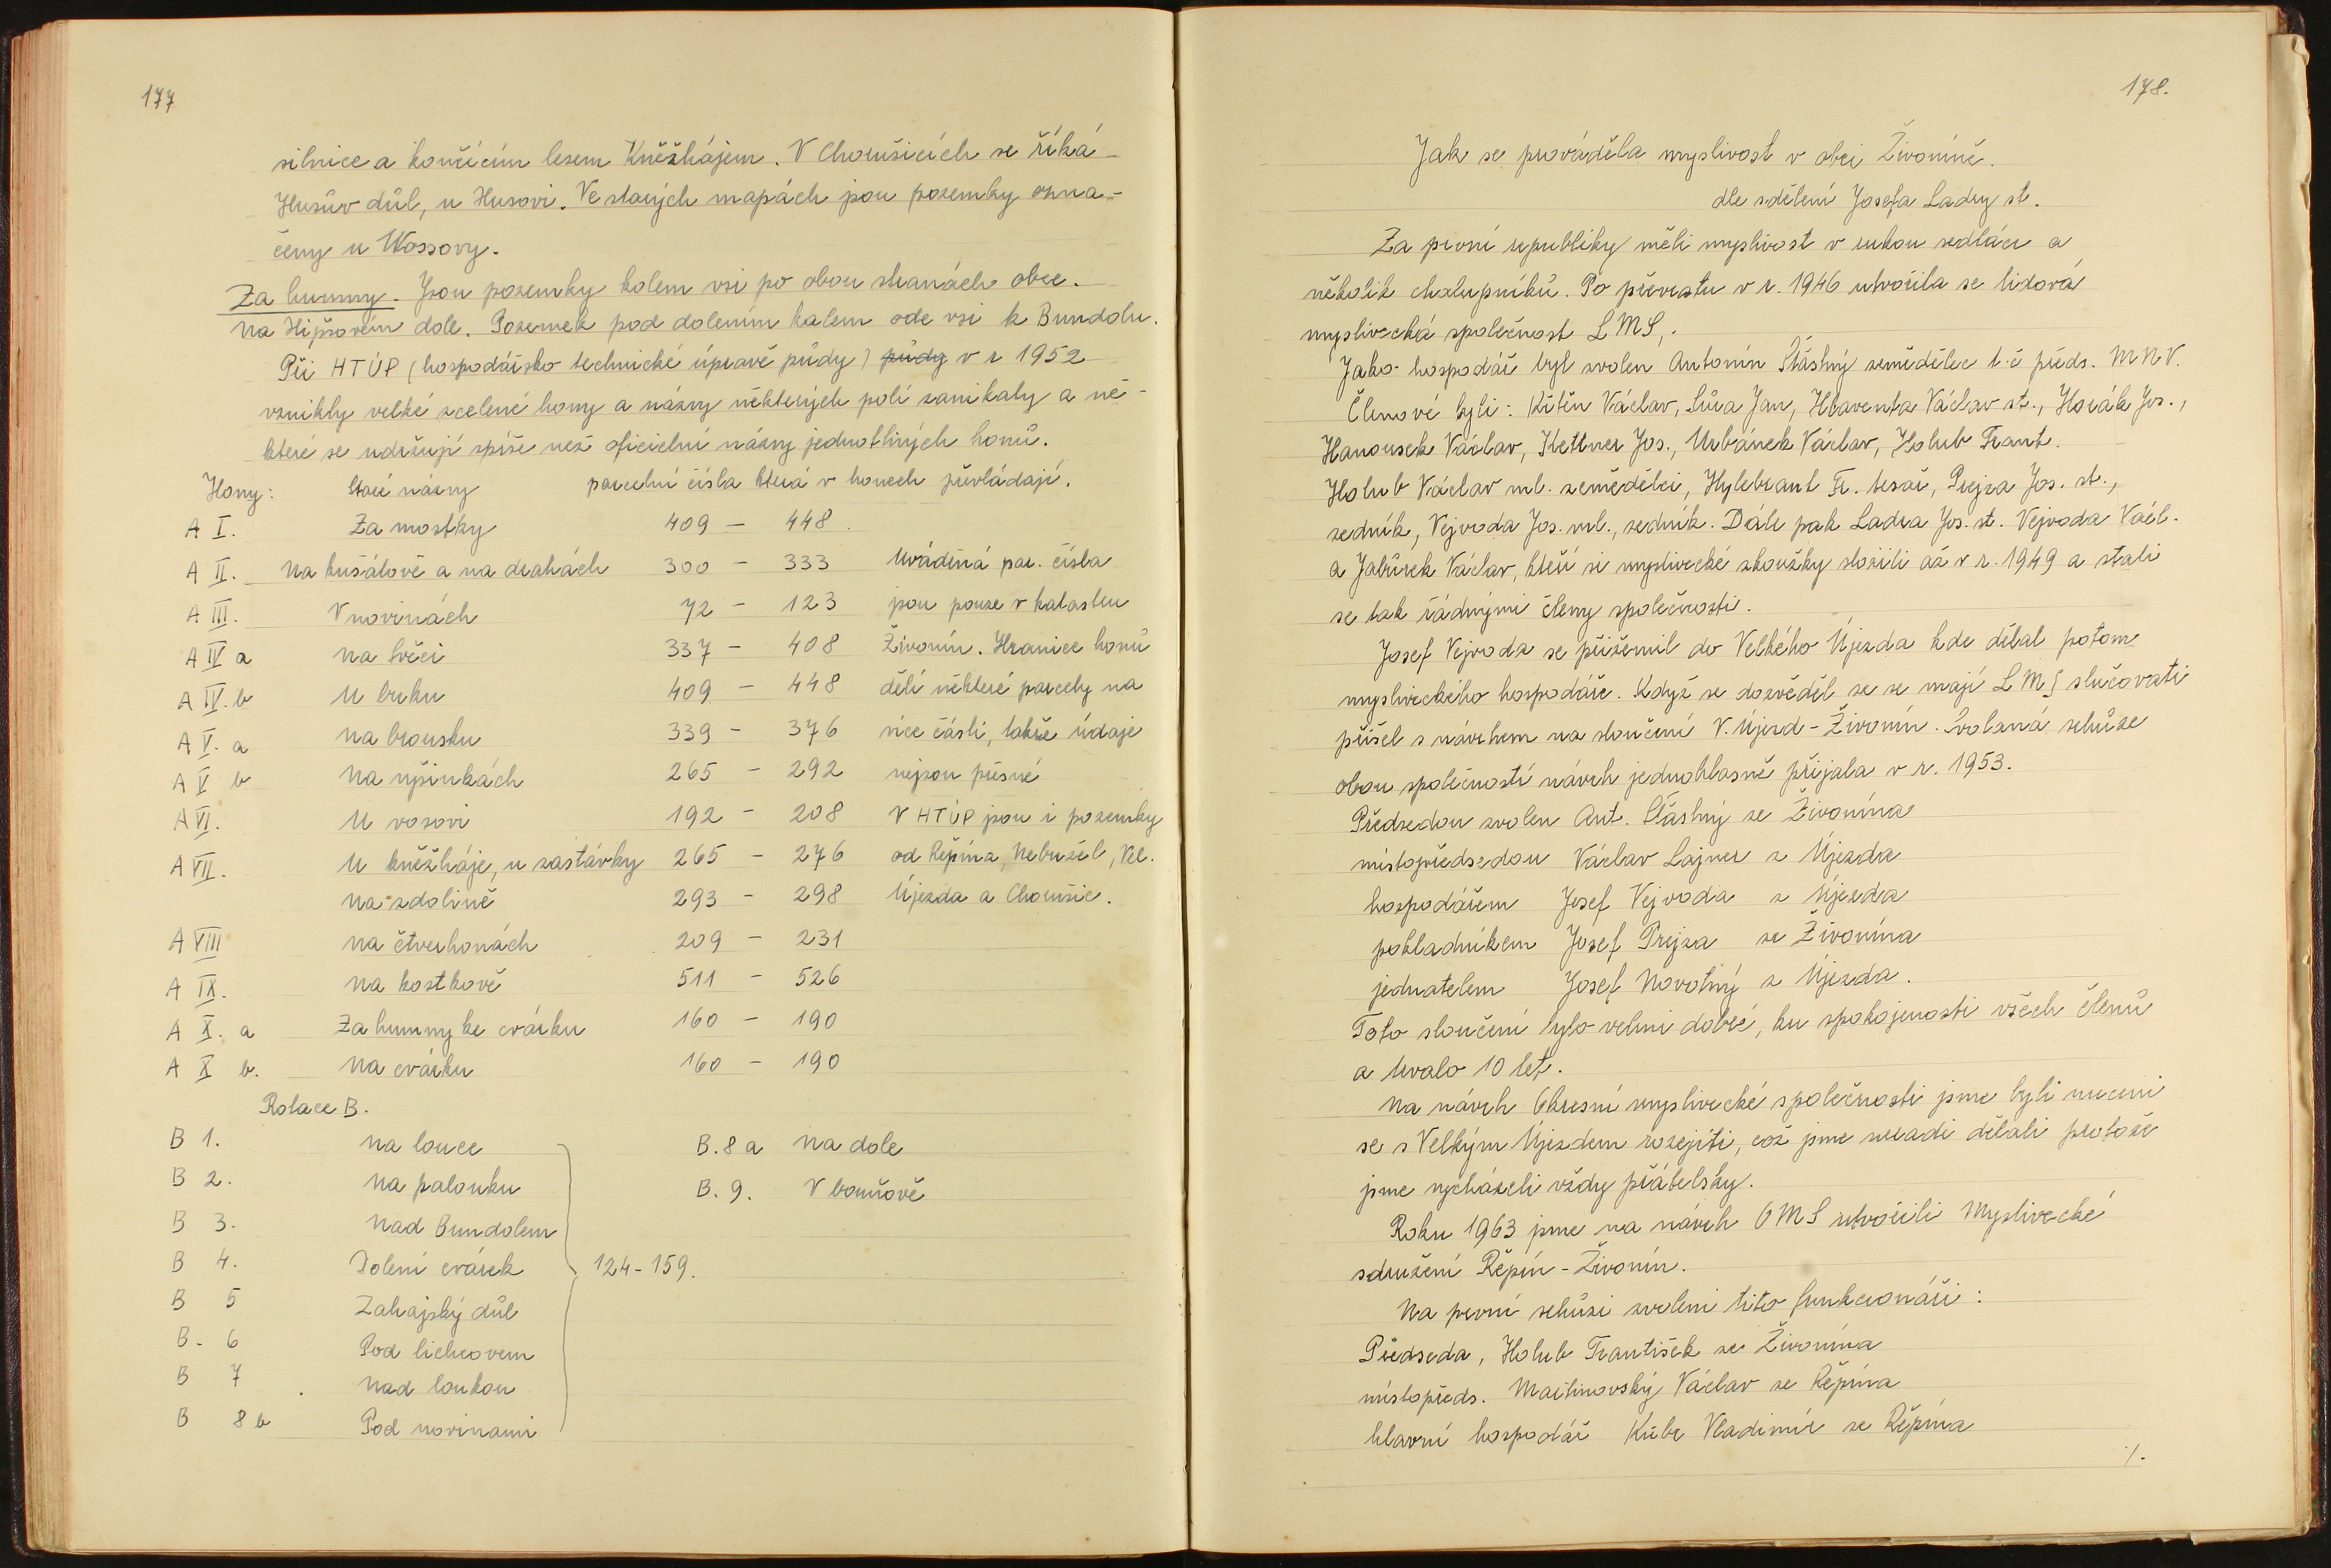 177
silnice a končícím lesem Kněžhájem. V Choušicích se říká
Husův důl, u Husovi. Ve starých mapách jsou pozemky ozna-
čeny u Wossovy.
Za humny. Jsou pozemky kolem vsi po obou stranách obce.
Na Hipšovém dole. Pozemek pod dolením kalem ode vsi k Bundolu.
Při HTÚP (hospodářsko technické úpravě půdy) půdy v r 1952
vznikly velké scelené hony a názvy některých polí zanikaly a ně-
které se udržují spíše než oficielní názvy jednotlivých honů.
Hony: Staré názvy parcelní čísla která v honech převládají.
A I. Za mostky 409 - 448.
A II. Na kušálově a na drahách 300 - 333 Uváděná par. čísla
A III. V novinách 72 - 123 jsou pouze v katastru
A IV a Na Svěci 337 - 408 Živonín. Hranice honů
A IV. b U buku 409 - 448 dělí některé parcely na
A V. a Na brousku 339 - 376 více částí, takže údaje
A V b Na vyšinkách 265 - 292 nejsou přesné
A VI. U vosovi 192 - 208 V HTÚP jsou i pozemky
A VII. U kněžháje, u zastávky 265 - 276 od Řepína, Nebužel, Vel.
Na zdolině 293 - 298 Újezda a Choušic.
A VIII na čtverhonách 209 - 231
A IX. Na kostkově 511 - 526
A X. a Za humny ke cvárku 160 - 190
A X b. Na cvárku 160 - 190
Rotace B.
B 1. Na louce B. 8 a Na dole
B 2. Na palouku B. 9. V bouřově
B 3. Nad Bundolem
B 4. Dolení cvárek 124-159.
B 5 Zahajský důl
B - 6 Pod lichcovem
B 7 Nad loukou
B 8 b Pod novinami
178.
Jak se prováděla myslivost v obci Živoníně.
dle sdělení Josefa Ladry st.
Za první republiky měli myslivost v rukou sedláci a
několik chalupníků. Po převratu v r. 1946 utvořila se lidová
myslivecká společnost LMS,.
Jako hospodář byl zvolen Antonín Šťastný zemědělec t.č předs. MNV.
Členové byli: Křtěn Václav, Sůra Jan, Hlaventa Václav st., Horák Jos.,
Hanousek Václav, Kettner Jos., Urbánek Václav, Holub Frant.
Holub Václav ml. zemědělci, Hylebrant Fr. tesař, Prejza Jos. st.,
zedník, Vejvoda Jos. ml., zedník. Dále pak Ladra Jos. st. Vejvoda Václ.
a Jabůrek Václav, kteří si myslivecké zkoušky složili až v r. 1949 a stali
se tak řádnými členy společnosti.
Josef Vejvoda se přiženil do Velkého Újezda kde dělal potom
mysliveckého hospodáře. Když se dozvěděl že se mají LMS slučovati
přišel s návrhem na sloučení V. Újezd - Živonín. Svolaná schůze
obou společností návrh jednohlasně přijala v r. 1953.
Předsedou zvolen Ant. Šťastný ze Živonína
místopředsedou Václav Lajner z Újezda
hospodářem Josef Vejvoda z Újezda
pokladníkem Josef Prejza ze Živonína
jednatelem Josef Novotný z Újezda.
Toto sloučení bylo velmi dobré, ku spokojenosti všech členů
a trvalo 10 let.
Na návrh Okresní myslivecké společnosti jsme byli nuceni
se s Velkým Újezdem rozejíti, což jsme neradi dělali protože
jsme vycházeli vždy přátelsky.
Roku 1963 jsme na návrh OMS utvořili Myslivecké
sdružení Řepín - Živonín.
Na první schůzi zvoleni tito funkcionáři:
Předseda, Holub František ze Živonína
místopředs. Martinovský Václav ze Řepína
hlavní hospodář Kubr Vladimír ze Řepína
./.